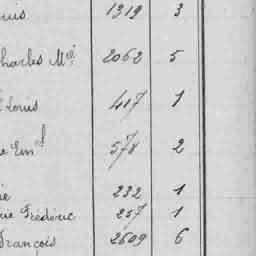 uis 1319 3
harles Mé 2062 5
Louis 417 1
e Eml 578 2
ie 232 1
rie Frédéric 257 1
François 2609 6